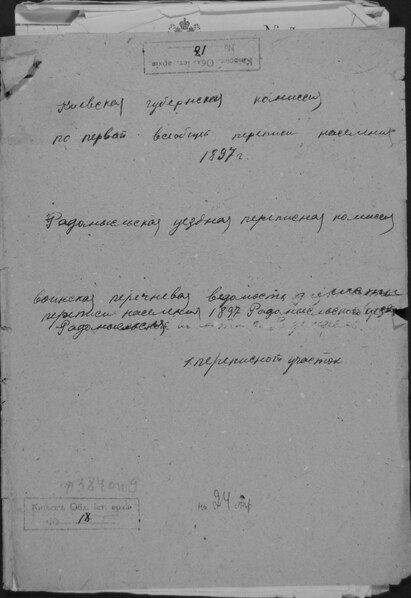 № 18
Київськ. Обл. іст. архів
Киевская губернская комиссия
по первой всеобщей переписи населения
1897 г.
Радомысльская уездная переписная комиссия
воинская перечневая ведомость
переписи населения 1897 Радомысльского уезда
Радомысльской
1. переписного участок
Київськ. Обл. іст. архів
№ 18
на 24 стр